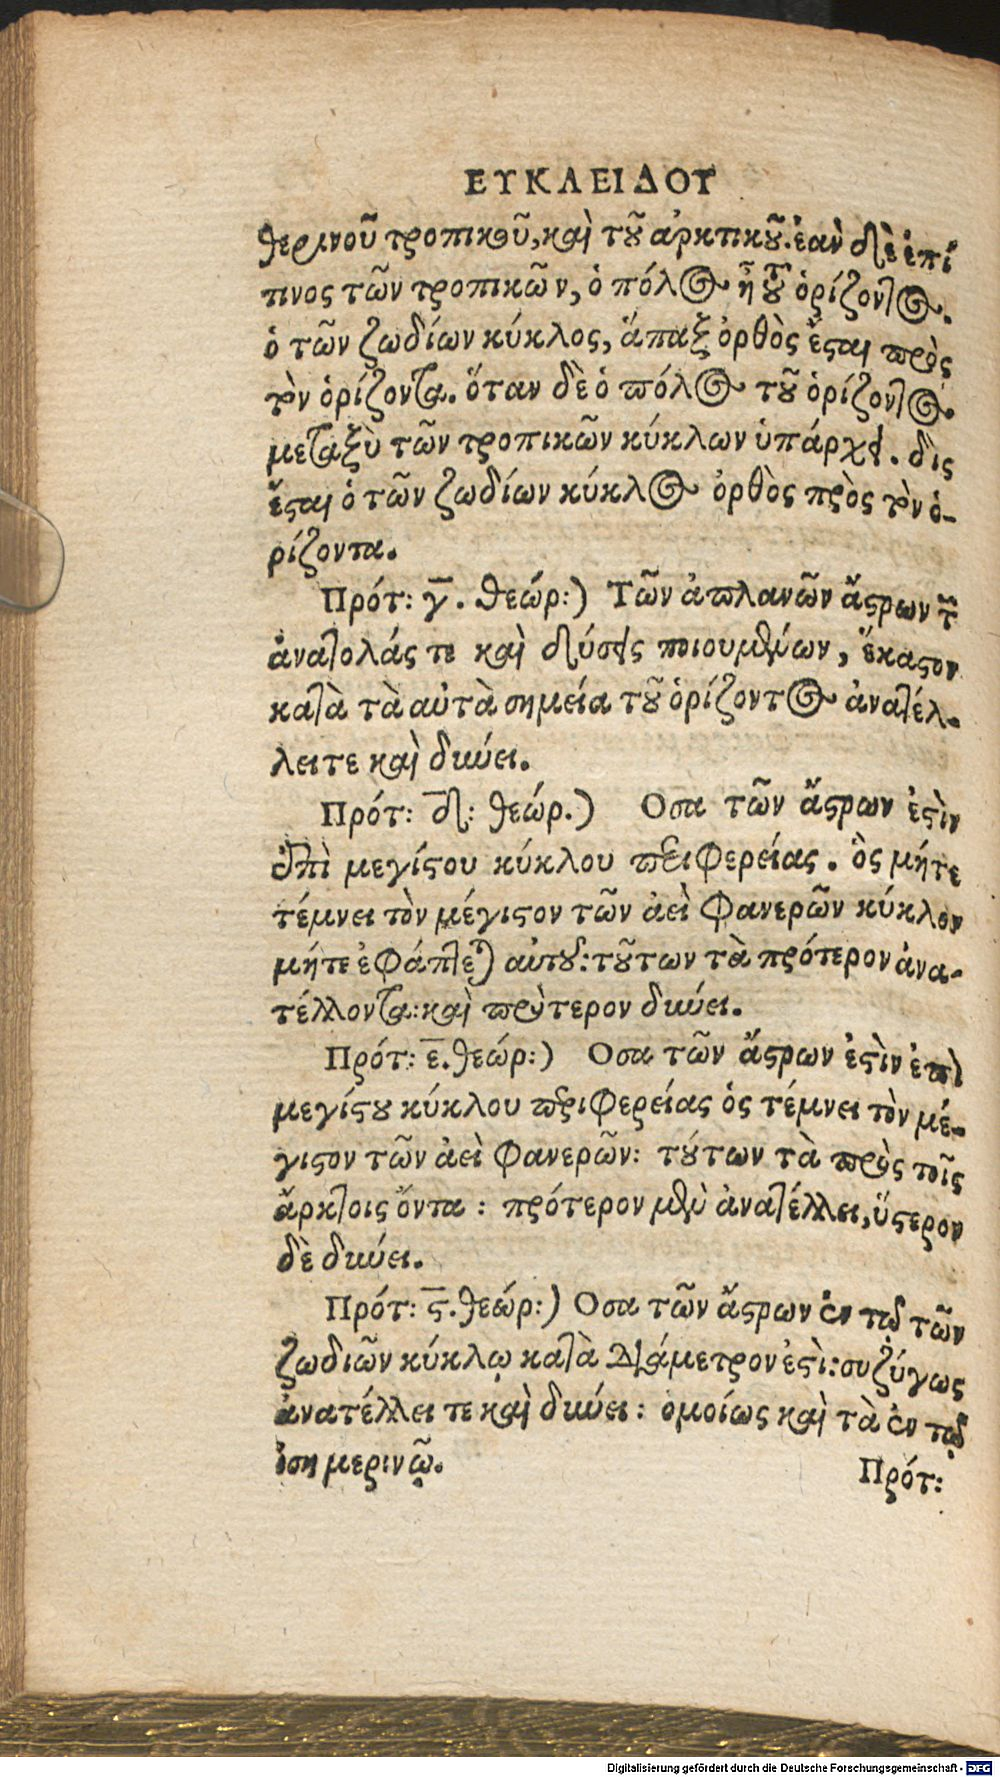 ΕΥΚΛΕΙΔΟΥ
θερινοῦ τροπικοῦ, καὶ τοῦ ἀρκτικοῦ. ἐὰν δὲ ἐπί
τινος τῶν τροπικῶν, ὁ πόλος ᾖ τοῦ ὁρίζοντος.
ὁ τῶν ζωδίων κύκλος, ἅπαξ ὀρθὸς ἔσται πρὸς
τὸν ὁρίζοντα. ὅταν δὲ ὁ πόλος τοῦ ὁρίζοντος
μεταξὺ τῶν τροπικῶν κύκλων ὑπάρχει. δὶς
ἔσται ὁ τῶν ζωδίων κύκλος ὀρθὸς πρὸς τὸν ὁ-
ρίζοντα.
Πρότ: γ̅. θεώρ:) Τῶν ἀπλανῶν ἄστρων τῶν
ἀνατολάς τε καὶ δύσεις ποιουμένων, ἕκαστον
κατὰ τὰ αὐτὰ σημεία τοῦ ὁρίζοντος ἀνατέλ-
λει τε καὶ δύνει.
Πρότ: δ̅: θεώρ.) Οσα τῶν ἄστρων ἐστὶν
ἐπὶ μεγίστου κύκλου περιφερείας. ὃς μήτε
τέμνει τὸν μέγιστον τῶν ἀεὶ φανερῶν κύκλον
μήτε ἐφάπτεται αὐτοῦ: τούτων τὰ πρότερον ἀνα-
τέλλοντα: καὶ πρότερον δύνει.
Πρότ: ε̅. θεώρ:) Οσα τῶν ἄστρων ἐστὶν ἐπὶ
μεγίστου κύκλου περιφερείας ὁς τέμνει τὸν μέ-
γιστον τῶν ἀεὶ φανερῶν: τούτων τὰ πρὸς τοῖς
ἄρκτοις ὄντα: πρότερον μὲν ἀνατέλλει, ὕστερον
δὲ δύνει.
Πρότ: ϛ̅. θεώρ:) Οσα τῶν ἄστρων ἐν τῷ τῶν
ζωδιῶν κύκλῳ κατὰ Διάμετρον ἐστὶ: συζύγως
ἀνατέλλει τε καὶ δύνει: ὁμοίως καὶ τὰ ἐν τῷ
ἰσημερινῷ.
Πρότ:
Digitalisierung gefördert durch die Deutsche Forschungsgemeinschaft - DFG